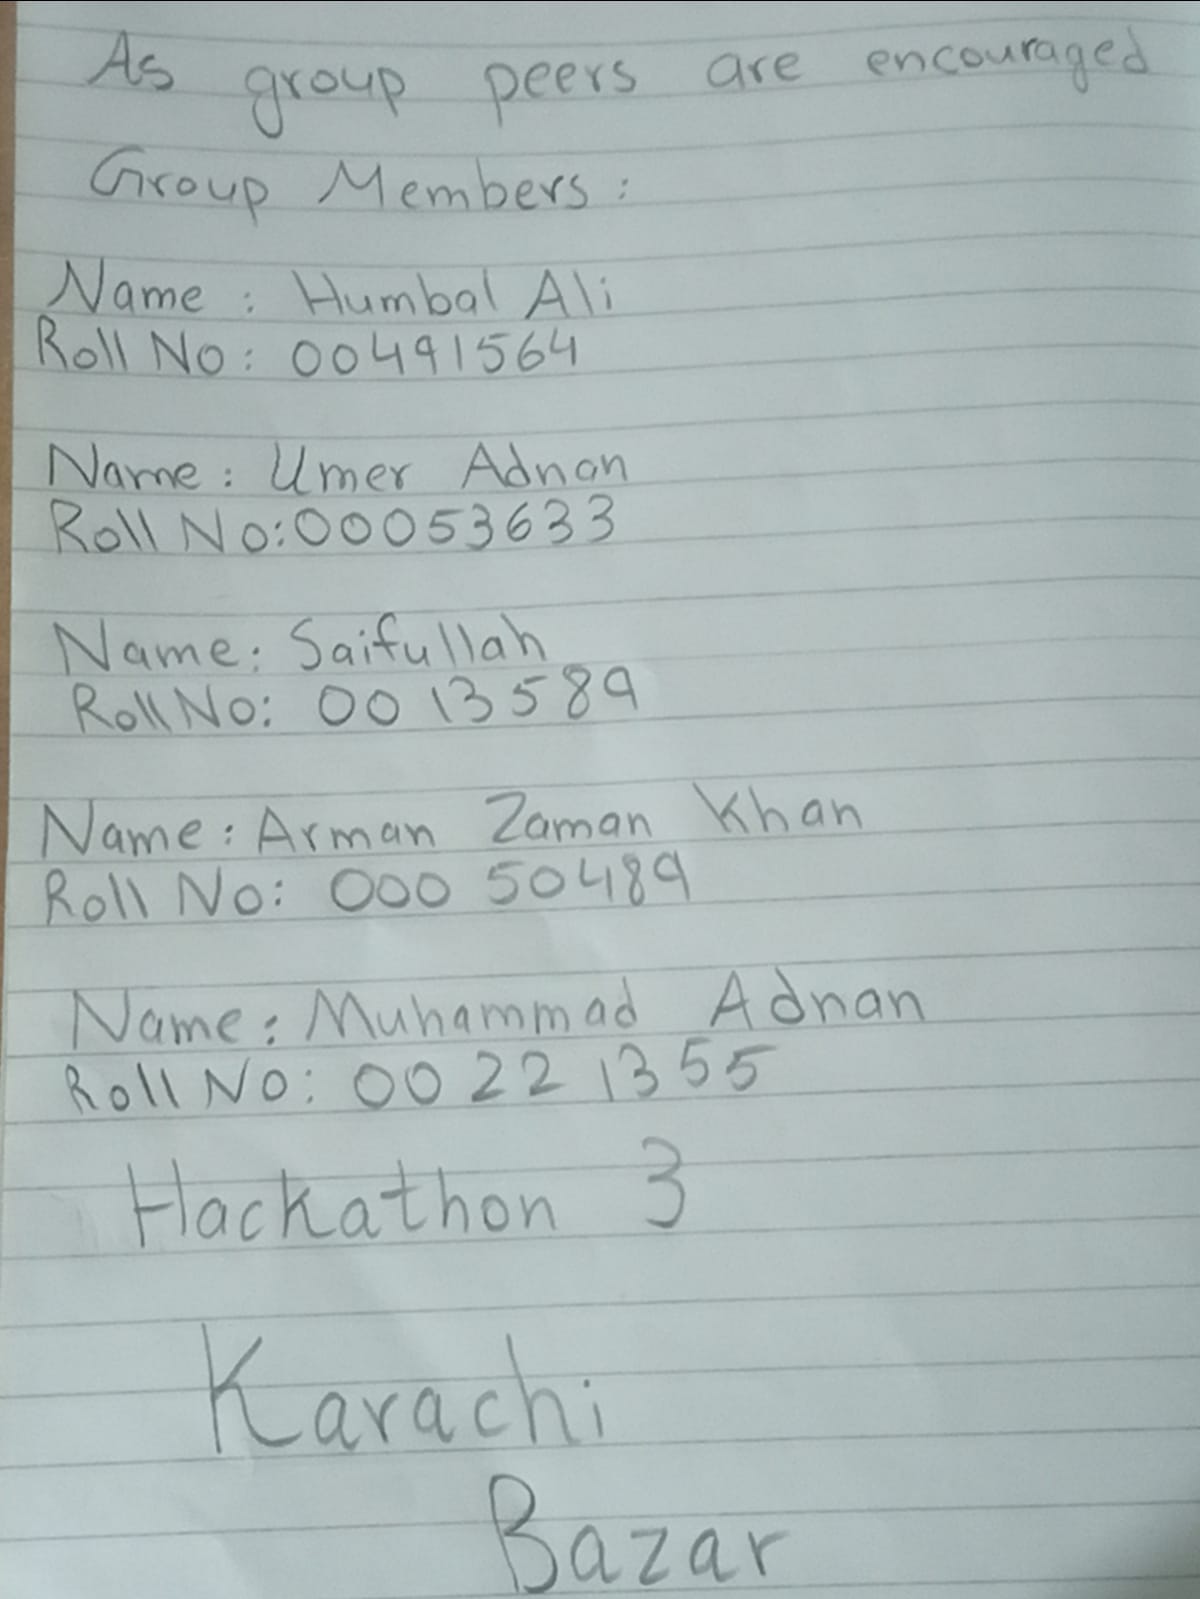 As group peers are encouraged
Group Members:
Name : Humbal Ali
Roll No: 00491564
Name: Umer Adnan
Roll No:00053633
Name: Saifullah
Roll No: 0013589
Name: Arman Zaman Khan
Roll No: 00050489
Name: Muhammad Adnan
Roll No: 00221355
Hackathon 3
Karachi
Bazar